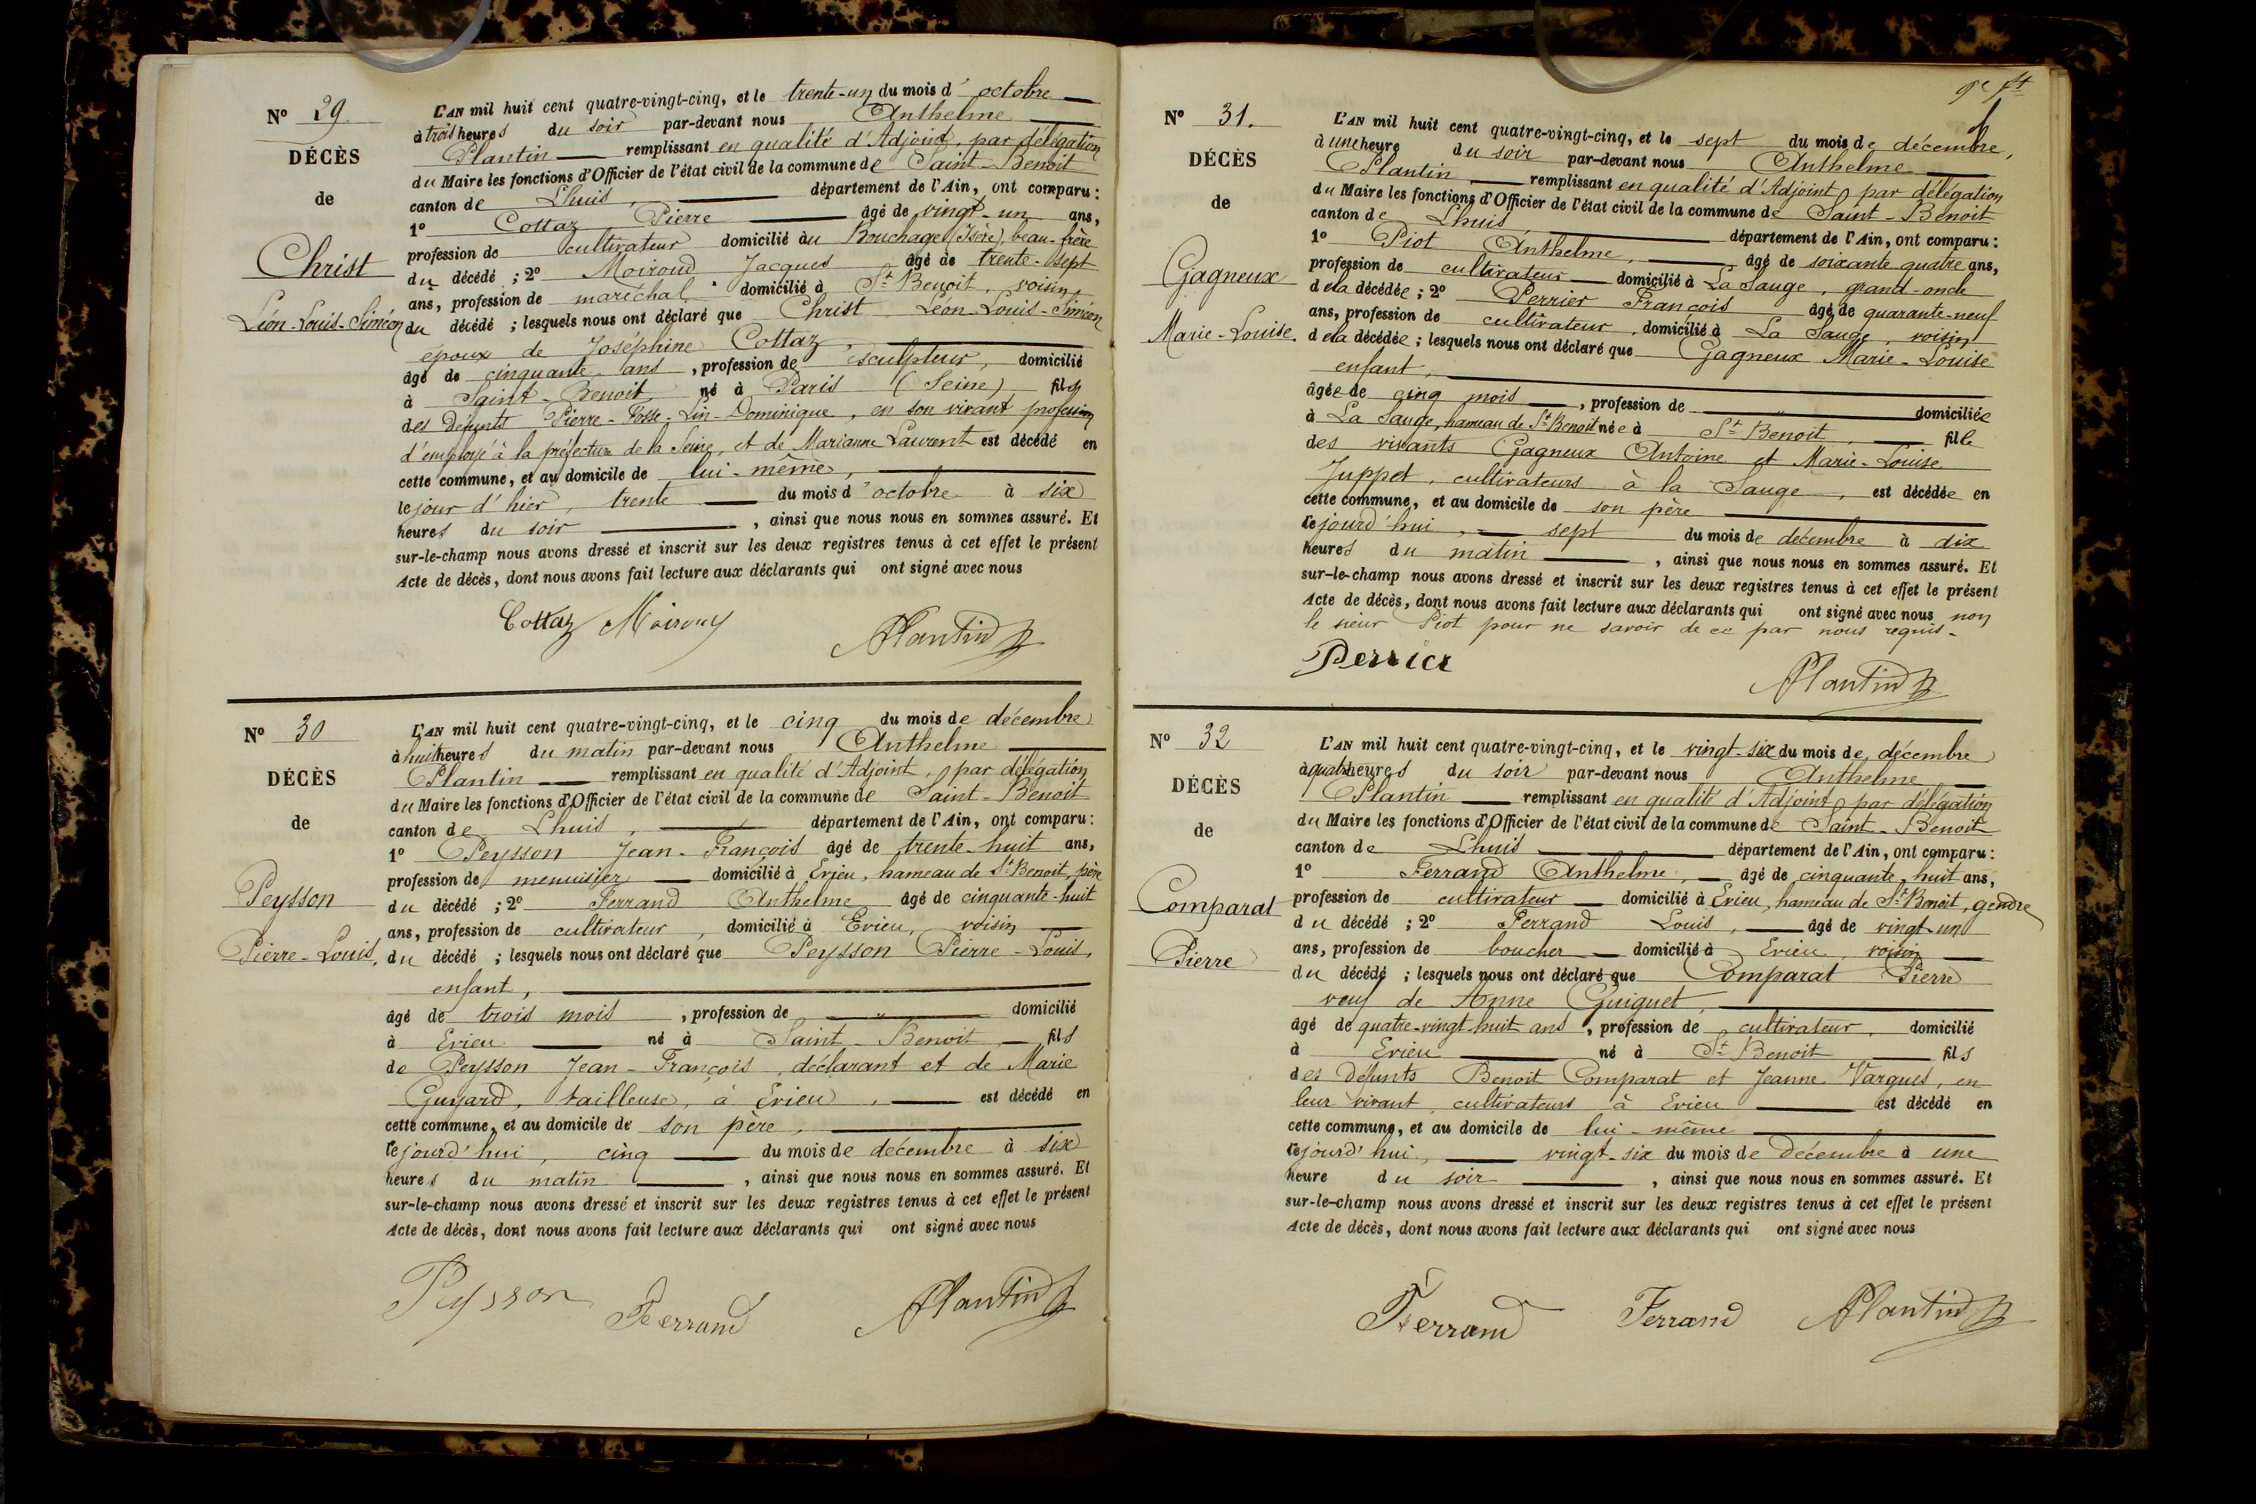 Nº 29
DÉCÈS
de
Christ
Léon-Louis-Siméon
L'AN mil huit cent quatre-vingt-cinq, et le trente-un du mois d'octobre
à trois heures du soir par-devant nous Anthelme
Plantin remplissant en qualité d'Adjoint, par délégation
du Maire les fonctions d'Officier de l'état civil de la commune de Saint-Benoit
canton de Lhuis, département de l'Ain, ont comparu :
1º Cottaz Pierre âgé de vingt-un ans,
profession de cultivateur domicilié au Bouchage (Isère), beau-frère
du décédé ; 2º Moiroud Jacques âgé de trente-sept
ans, profession de maréchal, domicilié à St Benoit, voisin
du décédé ; lesquels nous ont déclaré que Christ Léon-Louis-Siméon
époux de Joséphine Cottaz
âgé de cinquante ans, profession de sculpteur, domicilié
à Saint-Benoit né à Paris (Seine) fils
des défunts Pierre-Lin-Dominique, en son vivant profession
d'employé à la préfecture de la Seine, et de Marianne Laurent est décédé en
cette commune, et au domicile de lui-même,
le jour d'hier, trente du mois d'octobre à six
heures du soir, ainsi que nous nous en sommes assuré. Et
sur-le-champ nous avons dressé et inscrit sur les deux registres tenus à cet effet le présent
Acte de décès, dont nous avons fait lecture aux déclarants qui ont signé avec nous
Cottaz Moiroud Plantin
Nº 30
DÉCÈS
de
Peysson
Pierre-Louis,
L'AN mil huit cent quatre-vingt-cinq, et le cinq du mois de décembre
à huit heures du matin par-devant nous Anthelme
Plantin remplissant en qualité d'Adjoint, par délégation
du Maire les fonctions d'Officier de l'état civil de la commune de Saint-Benoit
canton de Lhuis, département de l'Ain, ont comparu :
1º Peysson Jean-François âgé de trente-huit ans,
profession de menuisier domicilié à Evieu, hameau de St Benoit, père
du décédé ; 2º Ferrand Anthelme âgé de cinquante-huit
ans, profession de cultivateur, domicilié à Evieu, voisin
du décédé ; lesquels nous ont déclaré que Peysson Pierre-Louis,
enfant,
âgé de trois mois, profession de " domicilié
à Evieu né à Saint-Benoit, fils
de Peysson Jean-François, déclarant et de Marie
Guyard, tailleuse, à Evieu, est décédé en
cette commune, et au domicile de son père,
cejourd'hui, cinq du mois de décembre à six
heures du matin, ainsi que nous nous en sommes assuré. Et
sur-le-champ nous avons dressé et inscrit sur les deux registres tenus à cet effet le présent
Acte de décès, dont nous avons fait lecture aux déclarants qui ont signé avec nous
Peysson Ferrand Plantin
Nº 31.
DÉCÈS
de
Gagneux
Marie-Louise.
L'AN mil huit cent quatre-vingt-cinq, et le sept du mois de décembre,
à une heure du soir par-devant nous Anthelme
Plantin, remplissant en qualité d'Adjoint, par délégation
du Maire les fonctions d'Officier de l'état civil de la commune de Saint-Benoit
canton de Lhuis département de l'Ain, ont comparu :
1º Piot Anthelme, âgé de soixante quatre ans,
profession de cultivateur domicilié à La Sauge, grand-oncle
de la décédée ; 2º Perrier François âgé de quarante-neuf
ans, profession de cultivateur, domicilié à La Sauge, voisin
de la décédée ; lesquels nous ont déclaré que Gagneux Marie-Louise
enfant,
âgée de cinq mois, profession de " domiciliée
à La Sauge, hameau de St Benoit née à St Benoit, fille
des vivants Gagneux Antoine et Marie-Louise
Juppet, cultivateurs à la Sauge, est décédée en
cette commune, et au domicile de son père
cejourd'hui, sept du mois de décembre à dix
heures du matin, ainsi que nous nous en sommes assuré. Et
sur-le-champ nous avons dressé et inscrit sur les deux registres tenus à cet effet le présent
Acte de décès, dont nous avons fait lecture aux déclarants qui ont signé avec nous non
le sieur Piot pour ne savoir de ce par nous requis.
Perrier
Plantin
Nº 32
DÉCÈS
de
Comparat
Pierre
L'AN mil huit cent quatre-vingt-cinq, et le vingt-six du mois de décembre
à quatre heures du soir par-devant nous Anthelme
Plantin remplissant en qualité d'Adjoint, par délégation
du Maire les fonctions d'Officier de l'état civil de la commune de Saint-Benoit
canton de Lhuis département de l'Ain, ont comparu :
1º Ferrand Anthelme, âgé de cinquante huit ans,
profession de cultivateur domicilié à Evieu, hameau de St Benoit, gendre
du décédé ; 2º Ferrand Louis, âgé de vingt-un
ans, profession de boucher domicilié à Evieu, voisin
du décédé ; lesquels nous ont déclaré que Comparat Pierre
veuf de Anne Guiguet,
âgé de quatre-vingt huit ans, profession de cultivateur, domicilié
à Evieu né à St Benoit fils
des défunts Benoit Comparat et Jeanne Vargues, en
leur vivant, cultivateurs à Evieu est décédé en
cette commune, et au domicile de lui-même
cejourd'hui, vingt-six du mois de Décembre à une
heure du soir, ainsi que nous nous en sommes assuré. Et
sur-le-champ nous avons dressé et inscrit sur les deux registres tenus à cet effet le présent
Acte de décès, dont nous avons fait lecture aux déclarants qui ont signé avec nous
Ferrand Ferrand Plantin